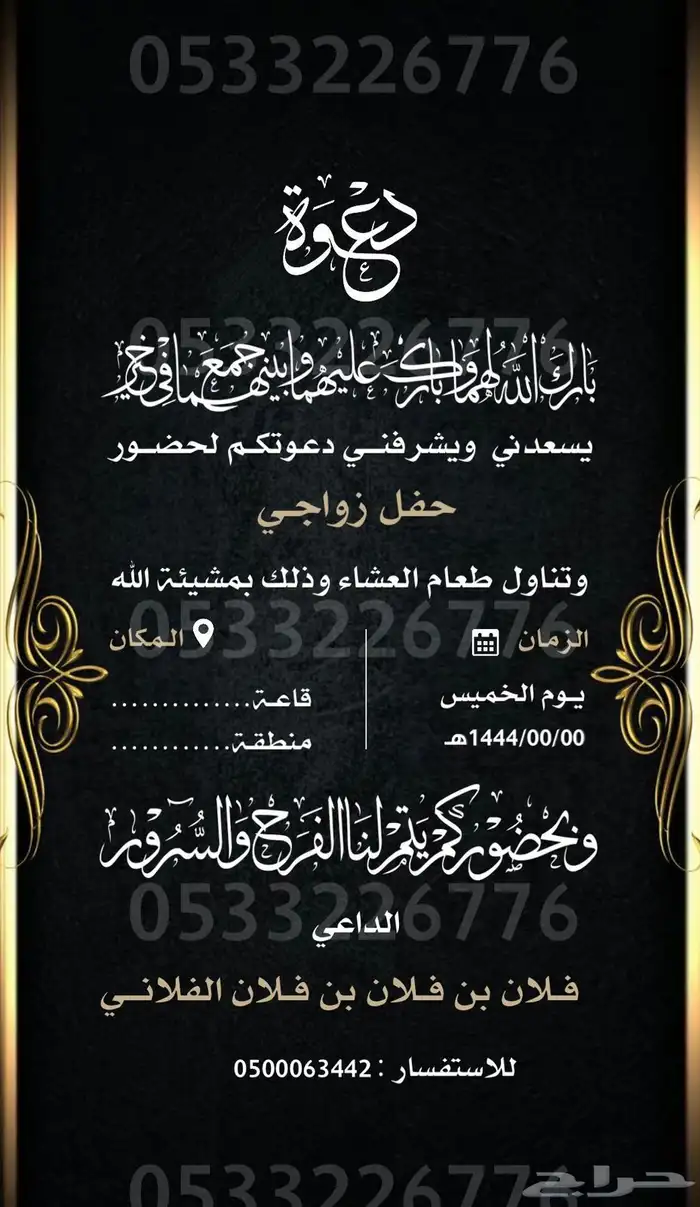 0533226776
دعوة
0533226776
بارك الله لهما وبارك عليهما وجمع بينهما في خير
يسعدني ويشرفني دعوتكم لحضور
حفل زواجي
وتناول طعام العشاء وذلك بمشيئة الله
0533226776
الزمان
المكان
يوم الخميس
قاعة..............
1444/00/00هـ
منطقة............
وبحضوركم يتم لنا الفرح والسرور
0533226776
الداعي
فلان بن فلان بن فلان الفلاني
للاستفسار : 0500063442
0533226776
حراج